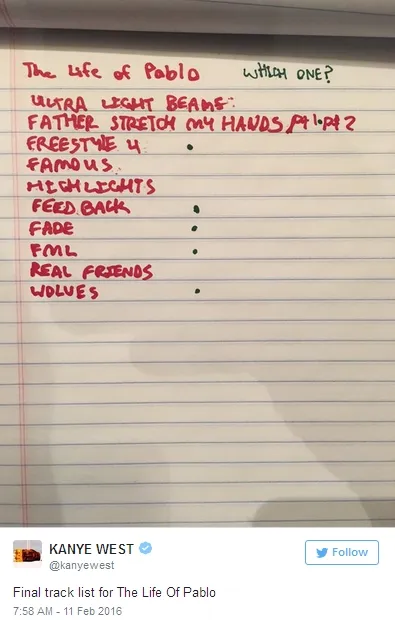 The Life of Pablo WHICH ONE?
ULTRA LIGHT BEAMS.
FATHER STRETCH MY HANDS Pt 1 · Pt 2
FREESTYLE 4 •
FAMOUS.
HIGHLIGHTS
FEEDBACK •
FADE •
FML •
REAL FRIENDS
WOLVES •
KANYE WEST
@kanyewest
Follow
Final track list for The Life Of Pablo
7:58 AM - 11 Feb 2016